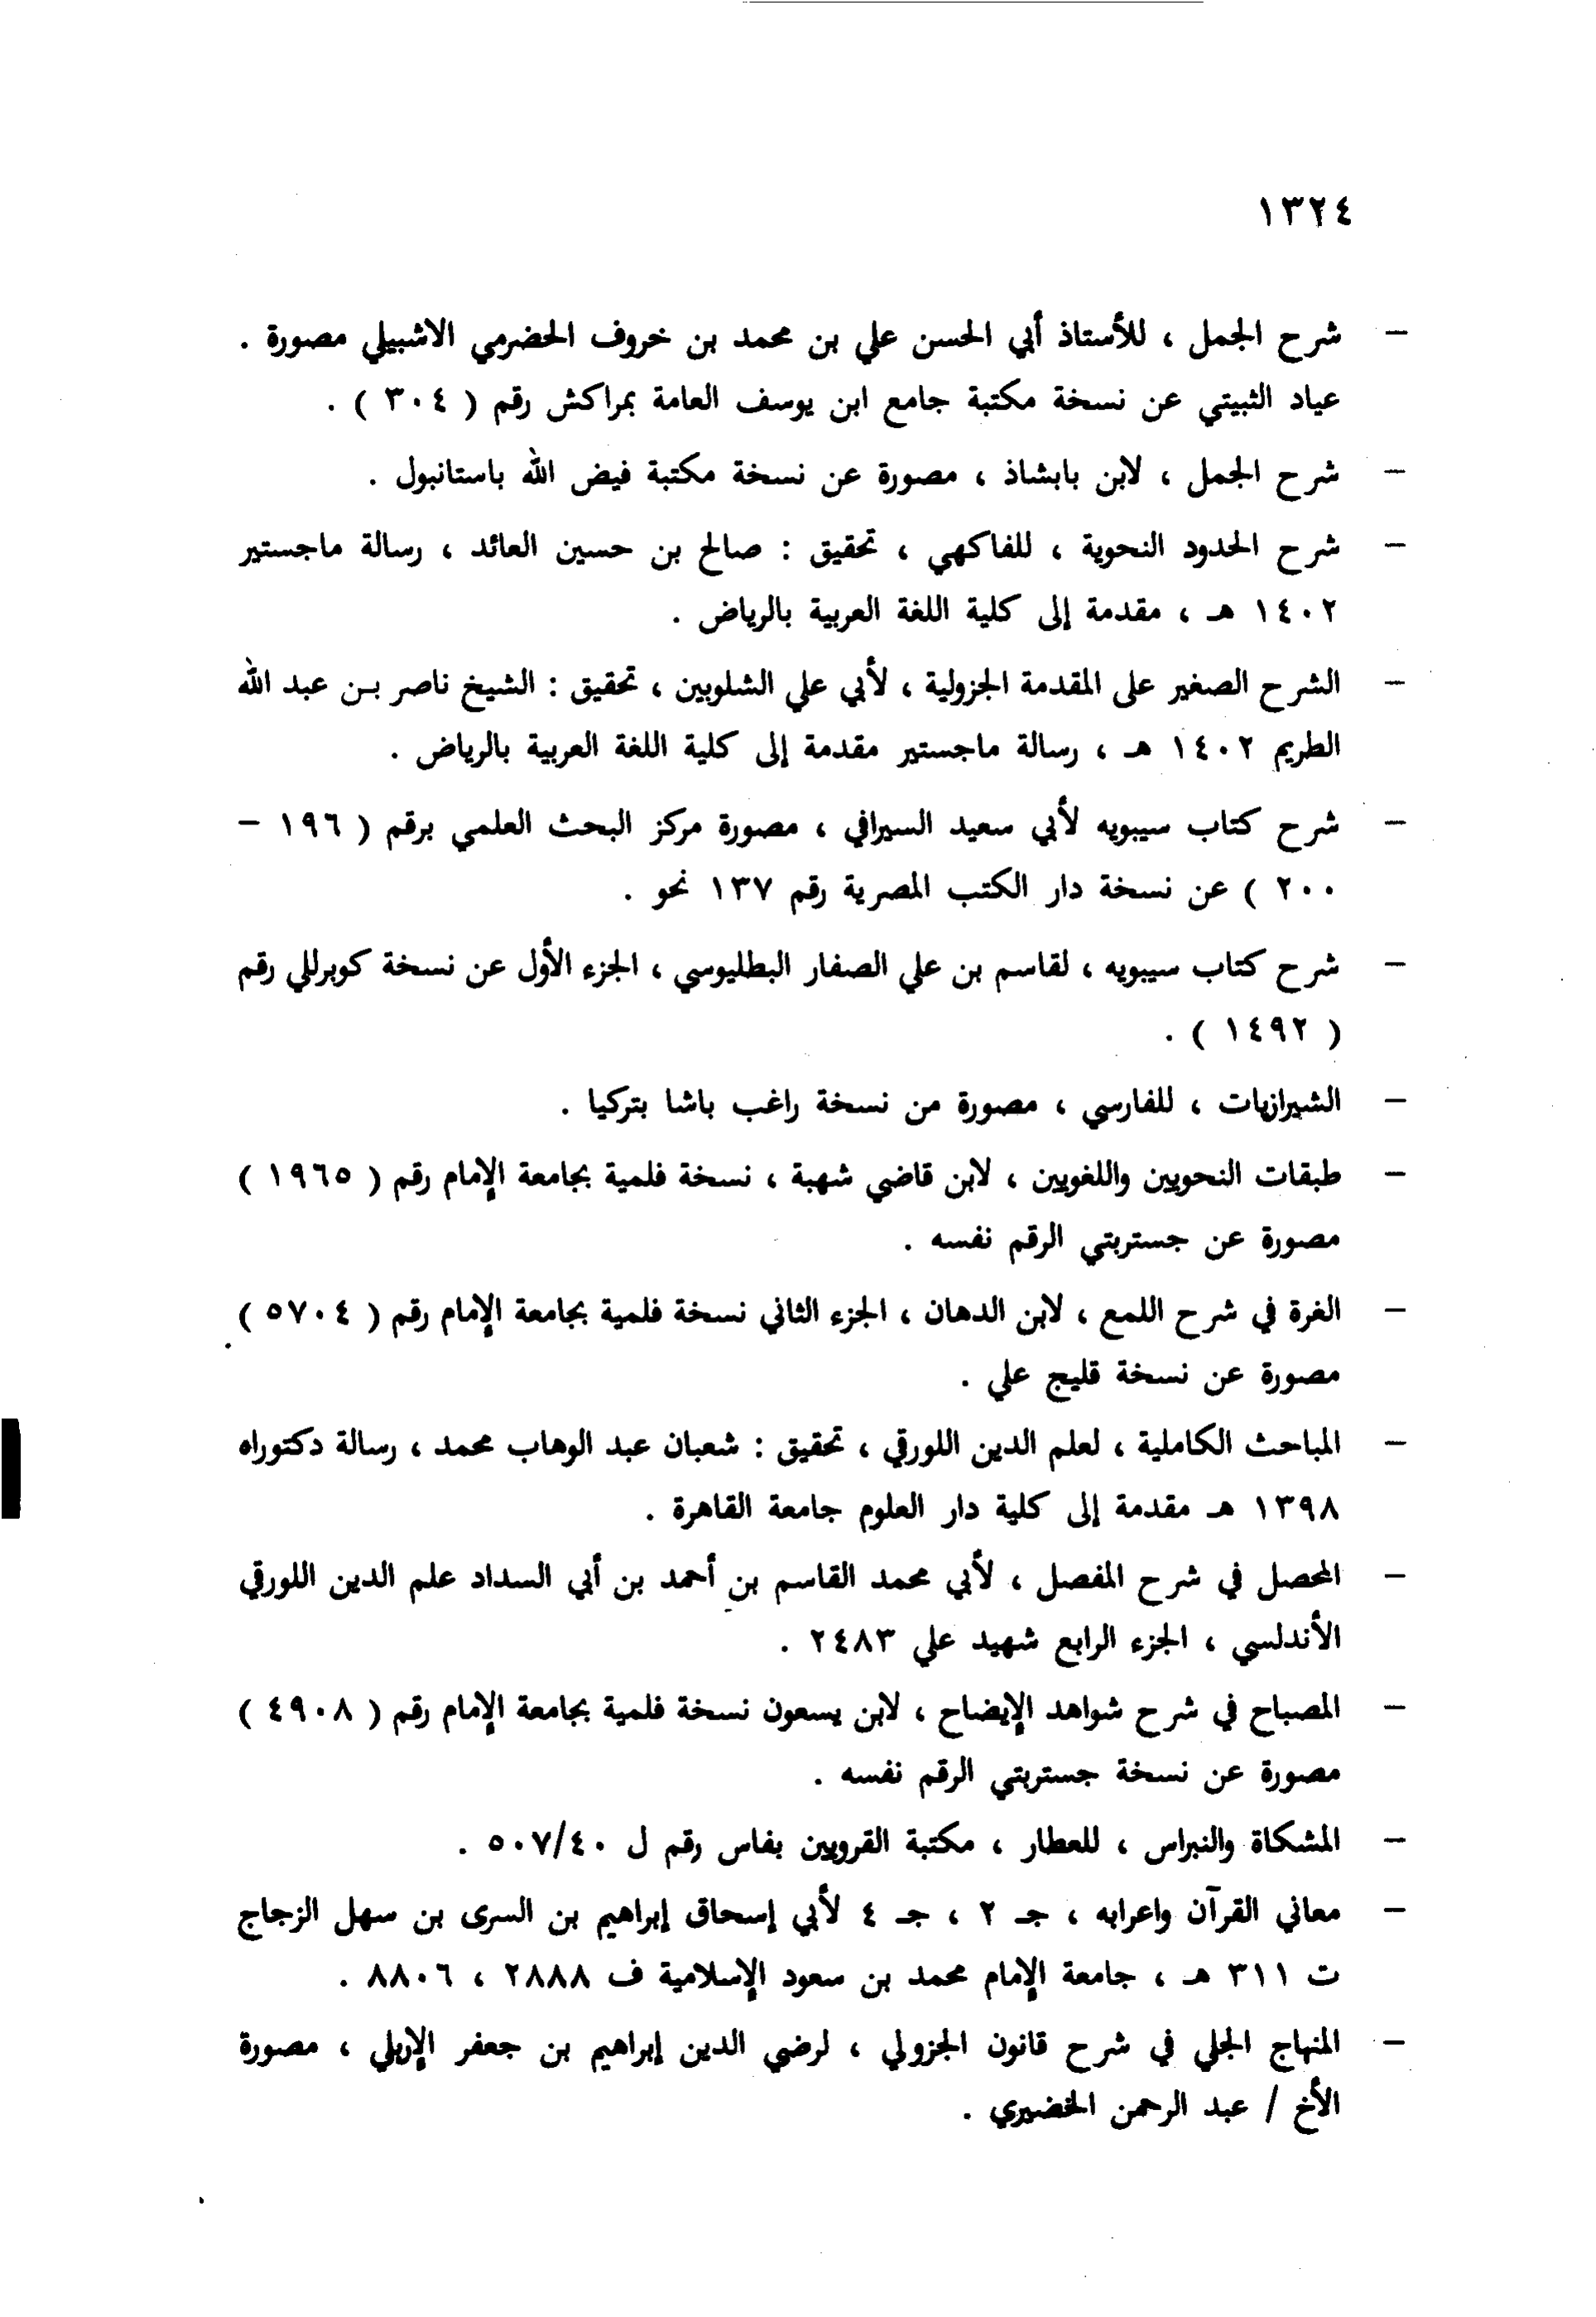 ١٣٢٤
– شرح الجمل ، للأستاذ أبي الحسن علي بن محمد بن خروف الحضرمي الاشبيلي مصورة .
عياد الثبيتي عن نسخة مكتبة جامع ابن يوسف العامة بمراكش رقم ( ٣٠٤ ) .
– شرح الجمل ، لابن بابشاذ ، مصورة عن نسخة مكتبة فيض الله باستانبول .
– شرح الحدود النحوية ، للفاكهي ، تحقيق : صالح بن حسين العائد ، رسالة ماجستير
١٤٠٢ هـ ، مقدمة إلى كلية اللغة العربية بالرياض .
– الشرح الصغير على المقدمة الجزولية ، لأبي علي الشلوبين ، تحقيق : الشيخ ناصر بـن عبد الله
الطريم ١٤٠٢ هـ ، رسالة ماجستير مقدمة إلى كلية اللغة العربية بالرياض .
– شرح كتاب سيبويه لأبي سعيد السيرافي ، مصورة مركز البحث العلمي برقم ( ١٩٦ –
٢٠٠ ) عن نسخة دار الكتب المصرية رقم ١٣٧ نحو .
– شرح كتاب سيبويه ، لقاسم بن علي الصفار البطليوسي ، الجزء الأول عن نسخة كوبرللي رقم
( ١٤٩٢ ) .
– الشيرازيات ، للفارسي ، مصورة من نسخة راغب باشا بتركيا .
– طبقات النحويين واللغويين ، لابن قاضي شهبة ، نسخة فلمية بجامعة الإمام رقم ( ١٩٦٥ )
مصورة عن جستربتي الرقم نفسه .
– الغرة في شرح اللمع ، لابن الدهان ، الجزء الثاني نسخة فلمية بجامعة الإمام رقم ( ٥٧٠٤ )
مصورة عن نسخة قليج علي .
– المباحث الكاملية ، لعلم الدين اللورقي ، تحقيق : شعبان عبد الوهاب محمد ، رسالة دكتوراه
١٣٩٨ هـ مقدمة إلى كلية دار العلوم جامعة القاهرة .
– المحصل في شرح المفصل ، لأبي محمد القاسم بن أحمد بن أبي السداد علم الدين اللورقي
الأندلسي ، الجزء الرابع شهيد علي ٢٤٨٣ .
– المصباح في شرح شواهد الإيضاح ، لابن يسعون نسخة فلمية بجامعة الإمام رقم ( ٤٩٠٨ )
مصورة عن نسخة جستربتي الرقم نفسه .
– المشكاة والنبراس ، للعطار ، مكتبة القرويين بفاس رقم ل ٥٠٧/٤٠ .
– معاني القرآن واعرابه ، جـ ٢ ، جـ ٤ لأبي إسحاق إبراهيم بن السرى بن سهل الزجاج
ت ٣١١ هـ ، جامعة الإمام محمد بن سعود الإسلامية ف ٢٨٨٨ ، ٨٨٠٦ .
– المنهاج الجلي في شرح قانون الجزولي ، لرضي الدين إبراهيم بن جعفر الإربلي ، مصورة
الأخ / عبد الرحمن الخضيري .